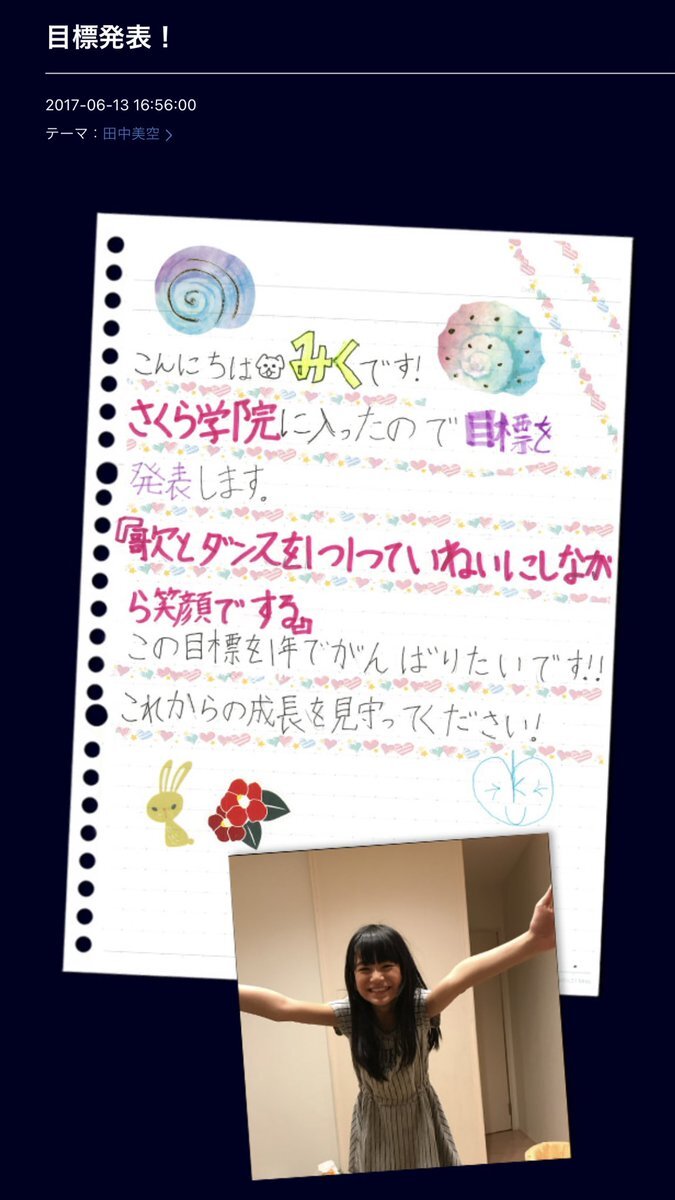 目標発表！
2017-06-13 16:56:00
テーマ：田中美空 >
こんにちは みくです!
さくら学院に入ったので目標を
発表します。
『歌とダンスを1つ1つていねいにしなが
ら笑顔でする』
この目標を1年でがんばりたいです!!
これからの成長を見守ってください!